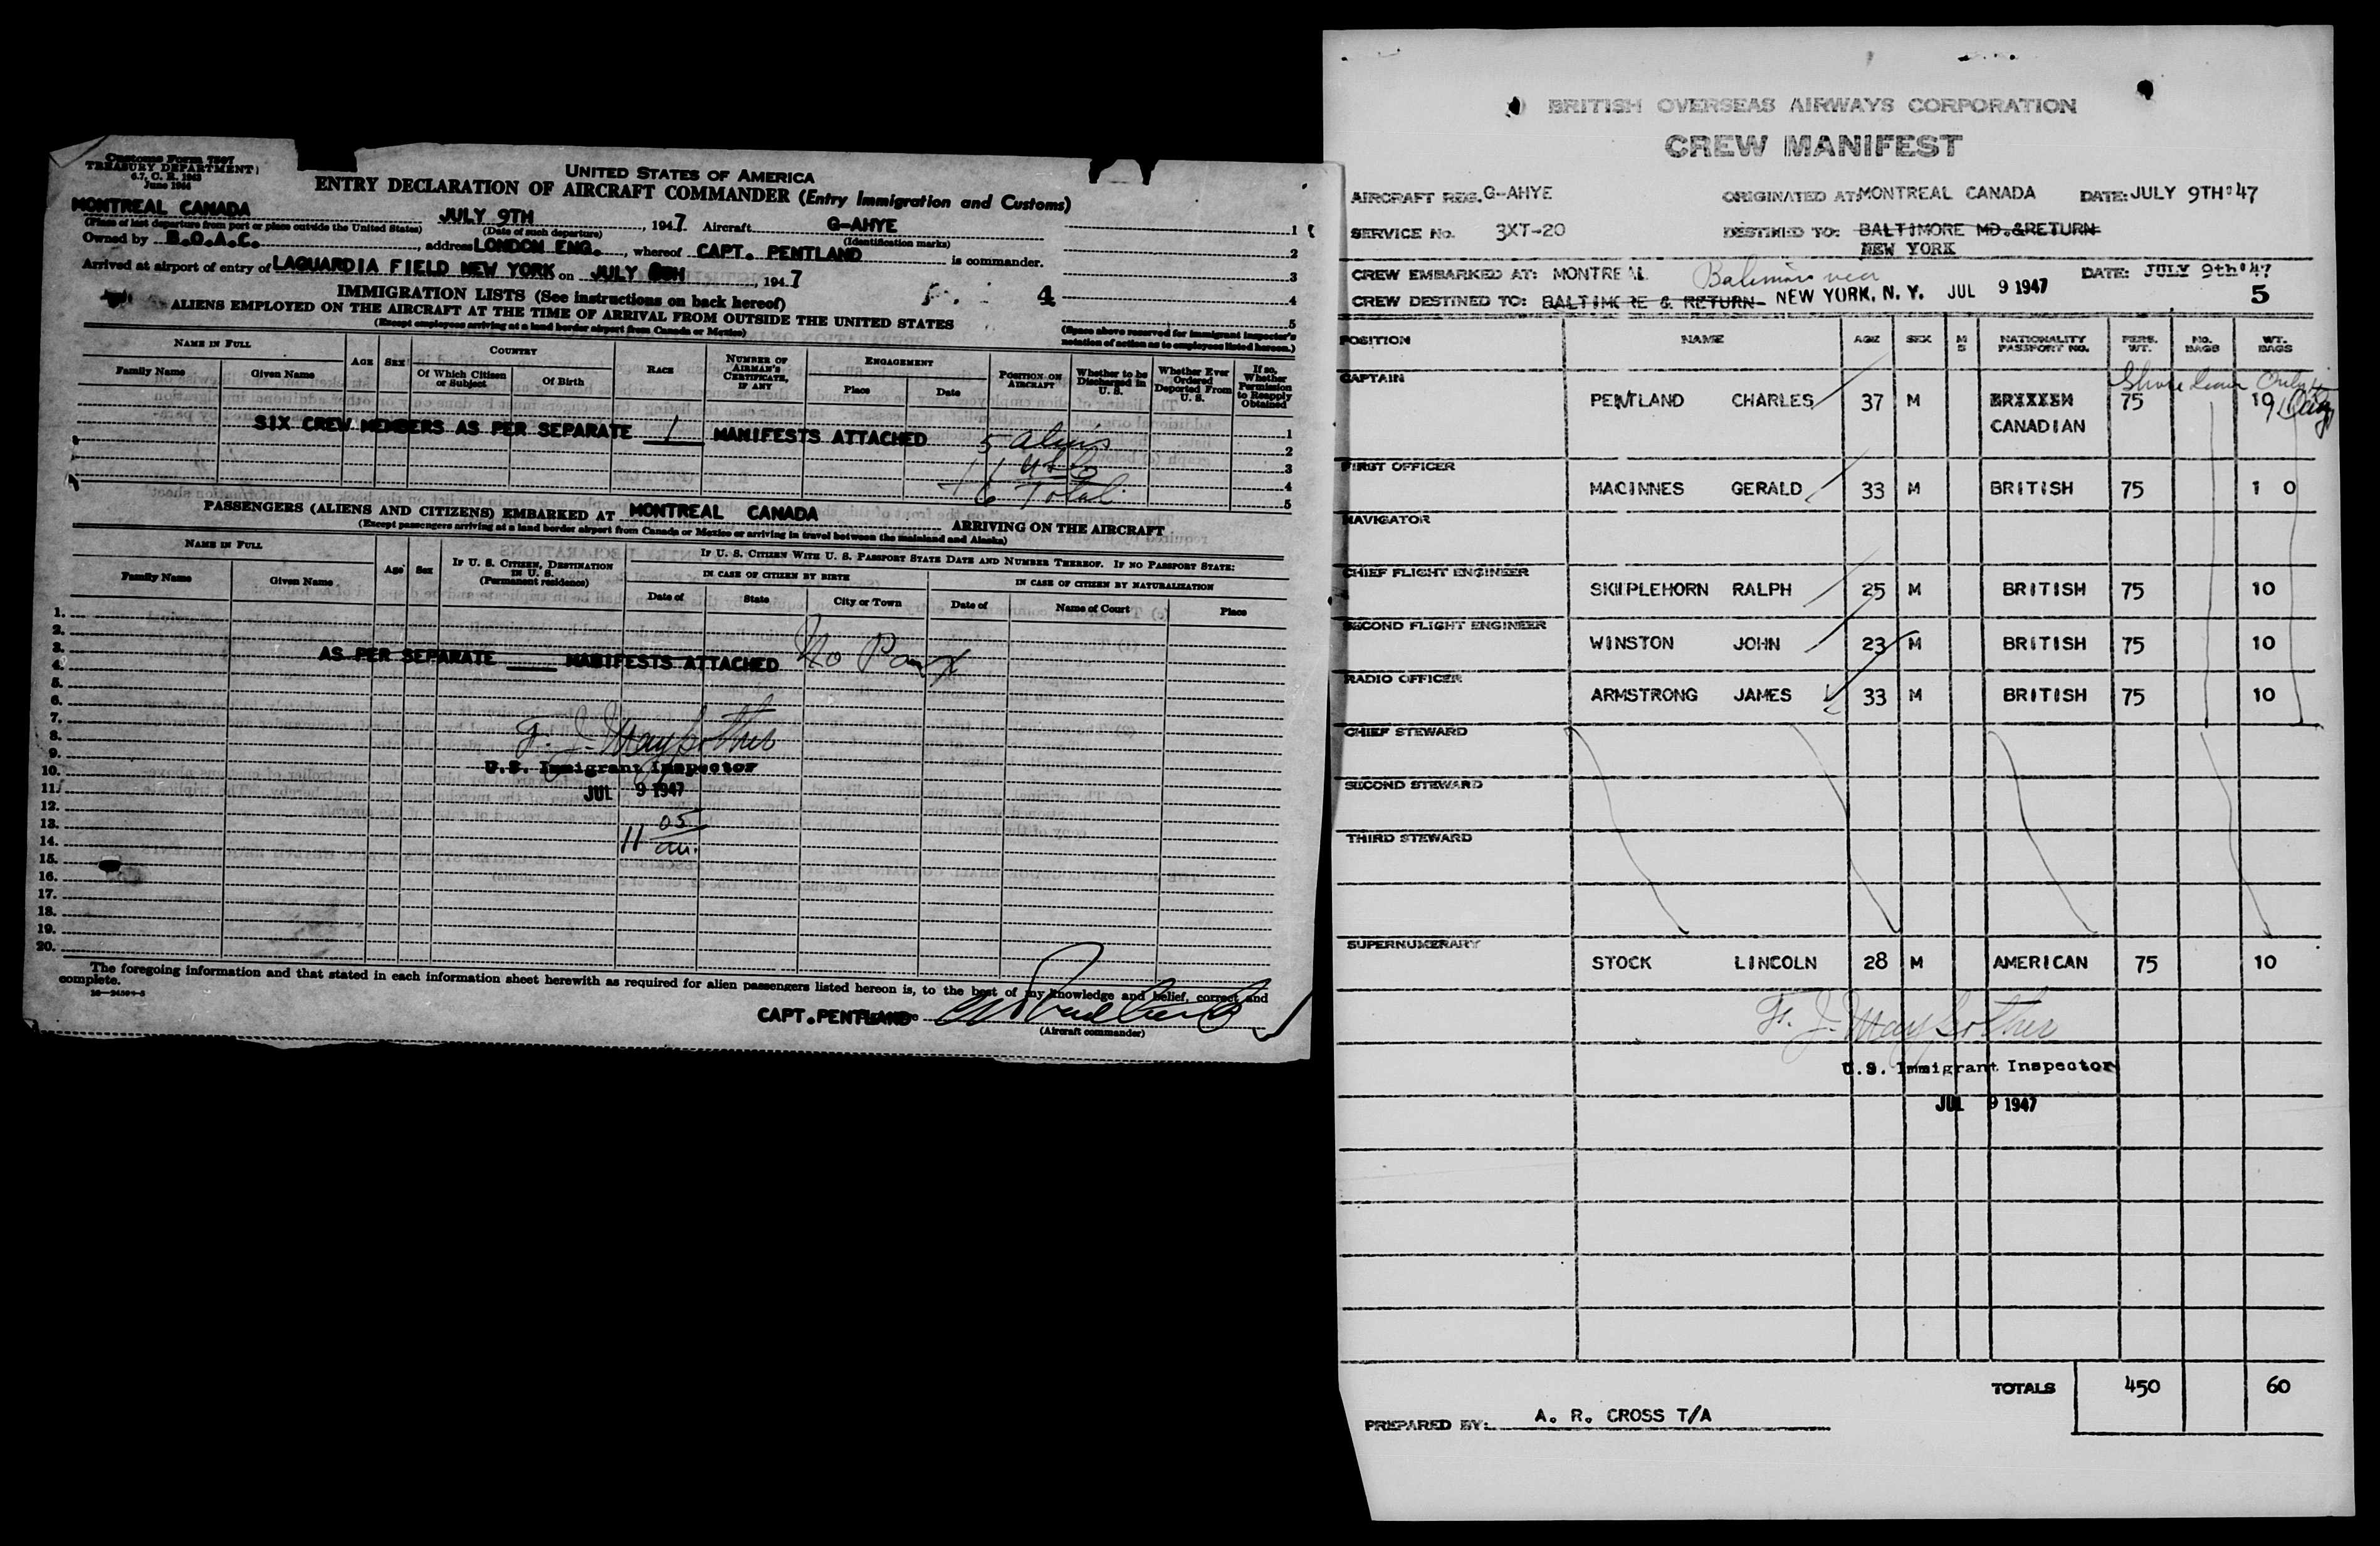 Customs Form 7507
TREASURY DEPARTMENT
6.7, C. R. 1943
June 1944
UNITED STATES OF AMERICA
ENTRY DECLARATION OF AIRCRAFT COMMANDER (Entry Immigration and Customs)
MONTREAL CANADA JULY 9TH, 1947 Aircraft G-AHYE
(Place of last departure from port or place outside the United States) (Date of such departure) (Identification marks)
Owned by B.O.A.C., address LONDON ENG., whereof CAPT. PENTLAND is commander.
Arrived at airport of entry of LAGUARDIA FIELD NEW YORK on JULY 9TH, 1947
1
2
3
4
5
IMMIGRATION LISTS (See instructions on back hereof) 4
ALIENS EMPLOYED ON THE AIRCRAFT AT THE TIME OF ARRIVAL FROM OUTSIDE THE UNITED STATES
(Except employees arriving at a land border airport from Canada or Mexico)
(Space above reserved for immigrant inspector's notation of action as to employees listed hereon.)
NAME IN FULL AGE SEX COUNTRY RACE NUMBER OF AIRMAN'S CERTIFICATE, IF ANY ENGAGEMENT POSITION ON AIRCRAFT Whether to be Discharged in U. S. Whether Ever Ordered Deported From U. S. If so, Whether Permission to Reapply Obtained
Family Name Given Name Of Which Citizen or Subject Of Birth Place Date
SIX CREW MEMBERS AS PER SEPARATE 1 MANIFESTS ATTACHED 5 aliens
1
2
3
4
5
1 USC
6 Total
PASSENGERS (ALIENS AND CITIZENS) EMBARKED AT MONTREAL CANADA ARRIVING ON THE AIRCRAFT
(Except passengers arriving at a land border airport from Canada or Mexico or arriving in travel between the mainland and Alaska)
NAME IN FULL Age Sex IF U. S. CITIZEN, DESTINATION IN U. S. (Permanent residence) IF U. S. CITIZEN WITH U. S. PASSPORT STATE DATE AND NUMBER THEREOF. IF NO PASSPORT STATE:
Family Name Given Name IN CASE OF CITIZEN BY BIRTH IN CASE OF CITIZEN BY NATURALIZATION
Date of State City or Town Date of Name of Court Place
1.
2.
3.
AS PER SEPARATE MANIFESTS ATTACHED No Pax
4.
5.
6.
7.
8.
9.
10.
11.
12.
13.
14.
15.
16.
17.
18.
19.
20.
F. J. Mayfother
U.S. Immigrant Inspector
JUL 9 1947
11 05 am.
The foregoing information and that stated in each information sheet herewith as required for alien passengers listed hereon is, to the best of my knowledge and belief, correct and complete.
CAPT. PENTLAND
(Aircraft commander)
BRITISH OVERSEAS AIRWAYS CORPORATION
CREW MANIFEST
AIRCRAFT REG. G-AHYE ORIGINATED AT: MONTREAL CANADA DATE: JULY 9TH'47
SERVICE No. 3XT-20 DESTINED TO: BALTIMORE MD.&RETURN
NEW YORK
CREW EMBARKED AT: MONTREAL DATE: JULY 9th'47
CREW DESTINED TO: BALTIMORE & RETURN- NEW YORK, N. Y. JUL 9 1947 5
POSITION NAME AGE SEX M S NATIONALITY PASSPORT NO. PERS. WT. NO. BAGS WT. BAGS
Shore Leave Only
CAPTAIN
PENTLAND CHARLES 37 M BRITISH 75 10
CANADIAN
FIRST OFFICER
MACINNES GERALD 33 M BRITISH 75 1 0
NAVIGATOR
CHIEF FLIGHT ENGINEER
SKIPLEHORN RALPH 25 M BRITISH 75 10
SECOND FLIGHT ENGINEER
WINSTON JOHN 23 M BRITISH 75 10
RADIO OFFICER
ARMSTRONG JAMES 33 M BRITISH 75 10
CHIEF STEWARD
SECOND STEWARD
THIRD STEWARD
SUPERNUMERARY
STOCK LINCOLN 28 M AMERICAN 75 10
F. J. Mayfother
U.S. Immigrant Inspector
JUL 9 1947
TOTALS 450 60
PREPARED BY: A. R. CROSS T/A